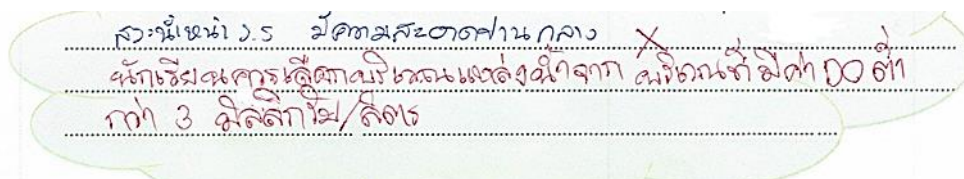 สระน้ำหน้า ร.ร มีความสะอาดปานกลาง
นักเรียนควรเลือกบริเวณแหล่งน้ำจาก บริเวณที่มีค่า DO ต่ำ
กว่า 3 มิลลิกรัม/ลิตร